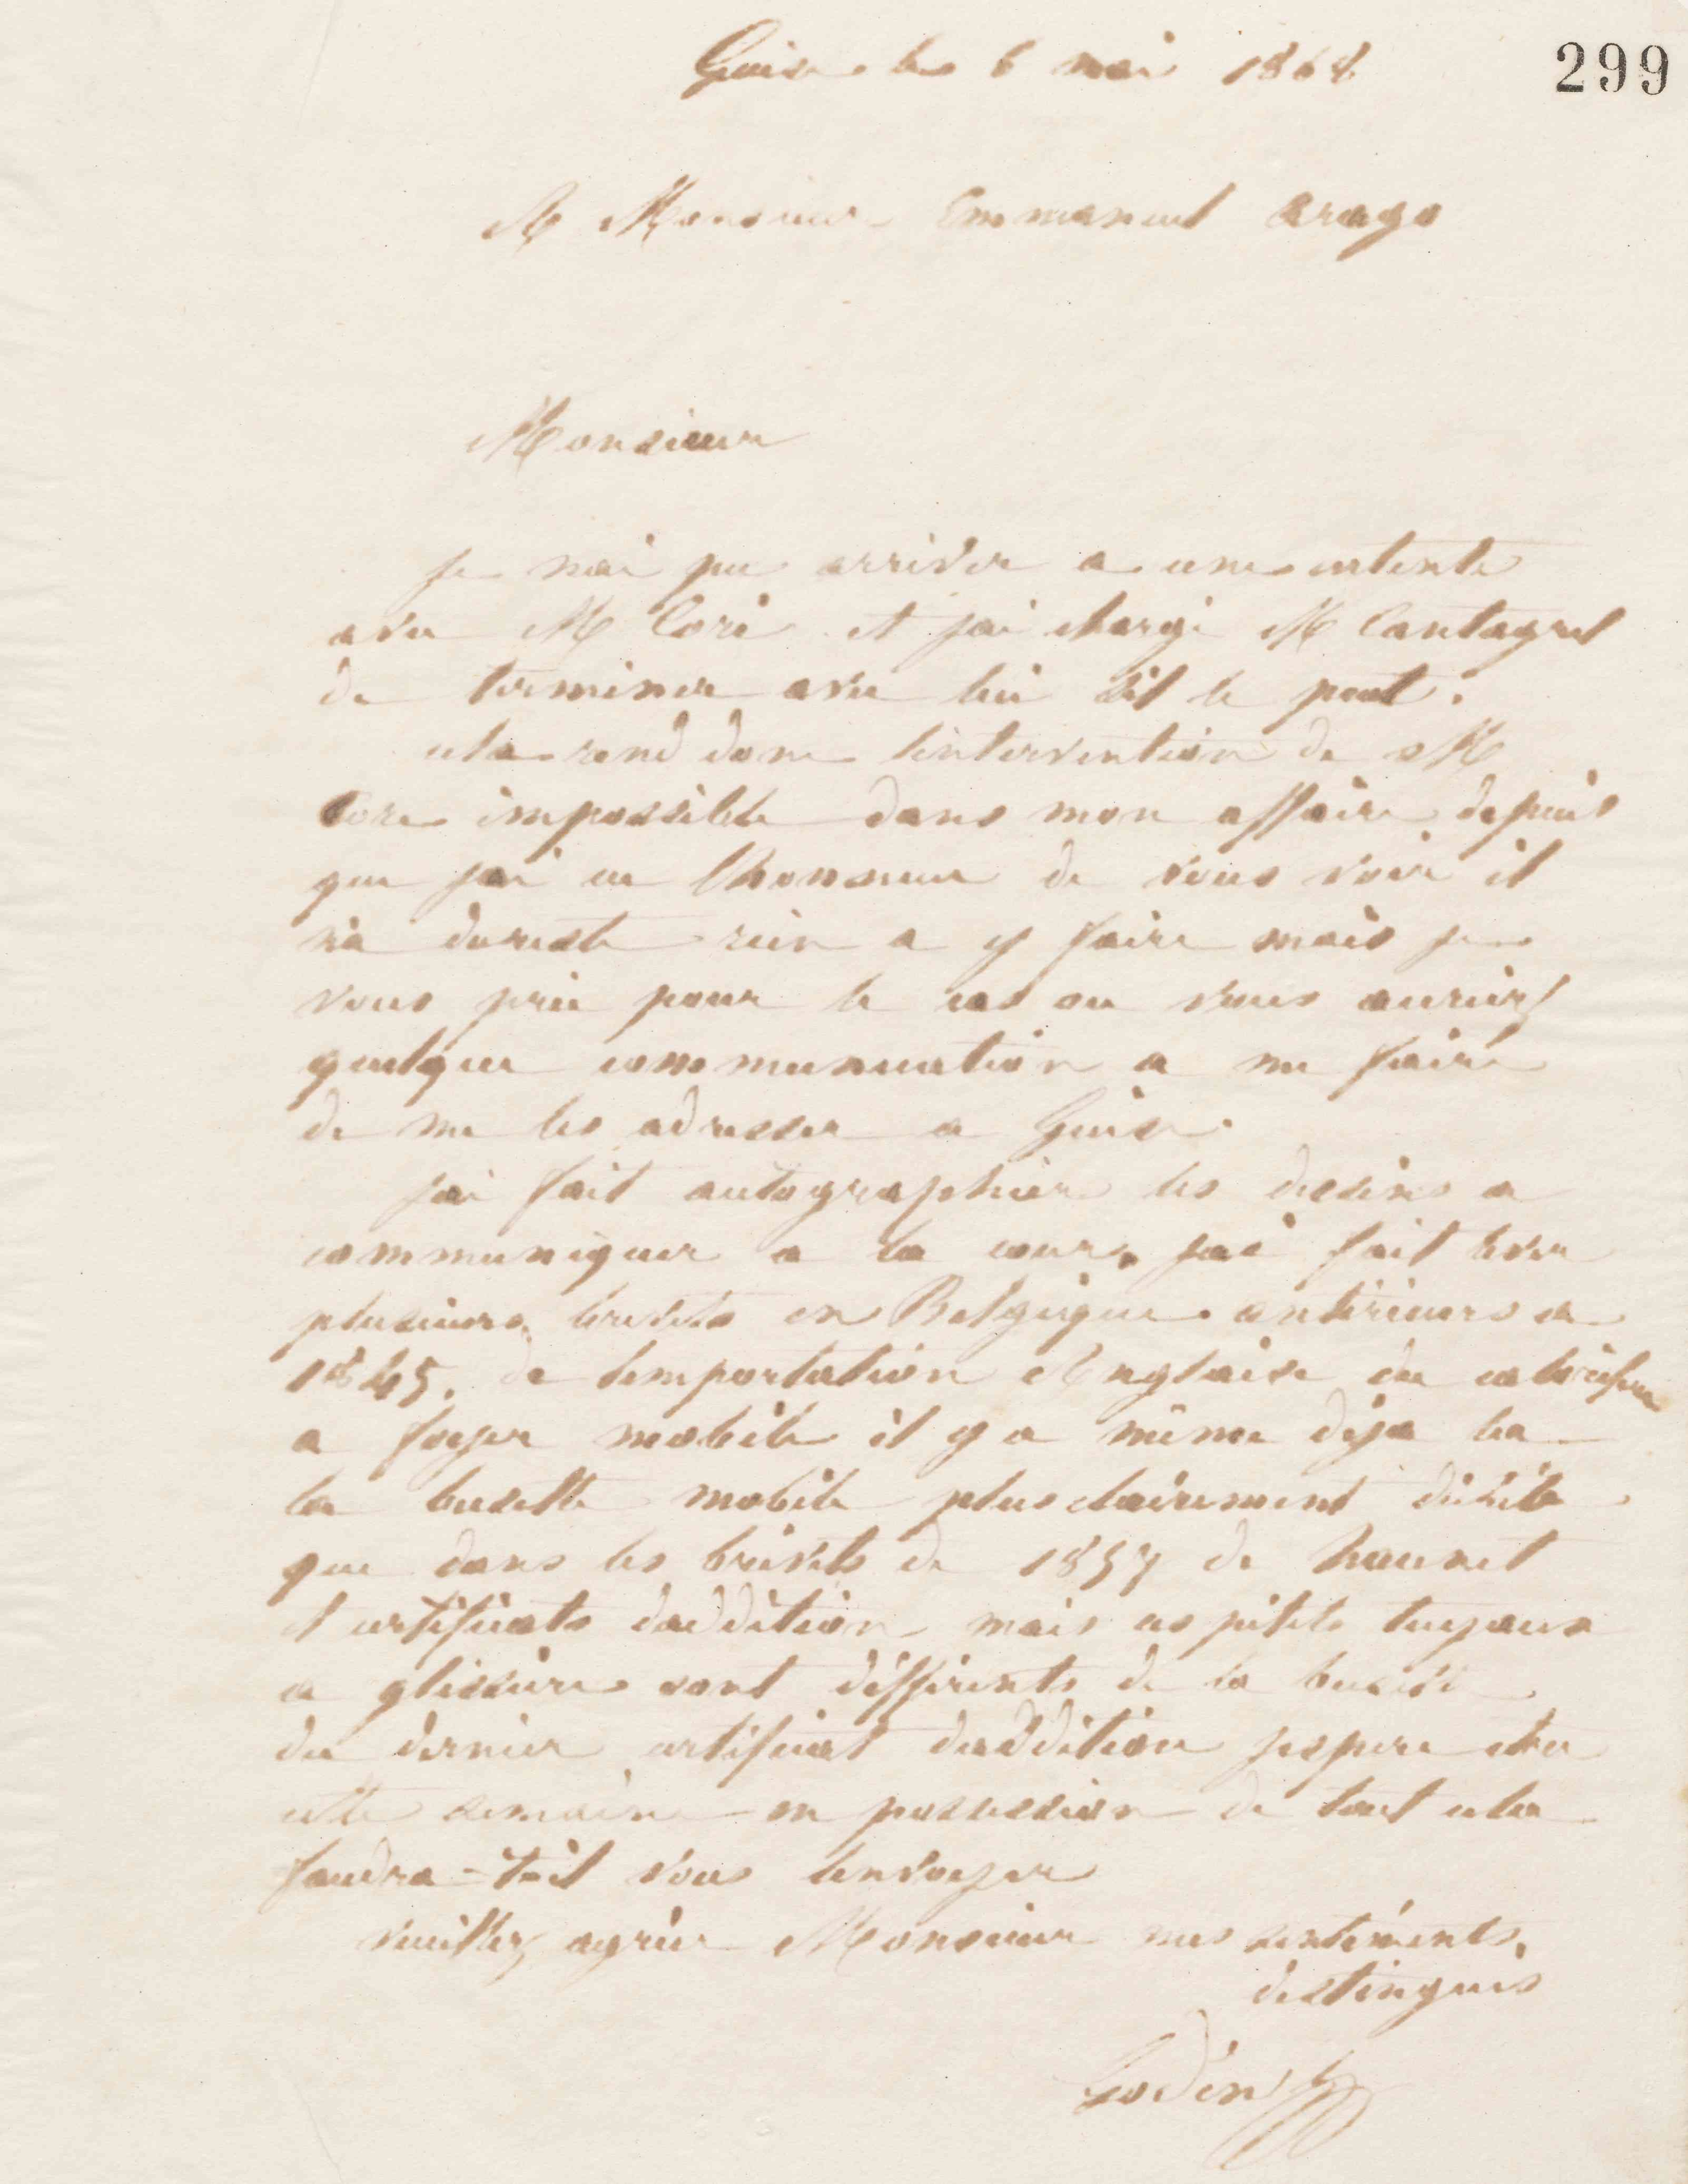 Guise le 6 mai 1868
299
A Monsieur Emmanuel Arago
Monsieur
je nai pu arriver a une entente
avec M Coré et jai chargé M Cantagrel
de terminer avec lui sil le peut.
cela rend donc lintervention de M
Coré impossible dans mon affaire depuis
que jai eu lhonneur de vous voir il
na dureste rien a y faire mais je
vous prie pour le cas ou vous auriez
quelque communication a me faire
de me les adresser a Guise.
jai fait autographier les dessins a
communiquer a la cour. jai fait lever
plusieurs brevets en Belgique anterieurs a
1845. de limportation Anglaise du calorifere
a foyer mobile il y a même déja la
la busette mobile plus clairement
que dans les brévets de 1857 de
et certificats daddition mais ces petits tuyaux
a glissière sont différents de la
du dernier certificat daddition jespere etre
cette semaine en possession de tout cela
faudra-t-il vous lenvoyer
veuillez agréer Monsieur mes sentiments
distingués
Godin